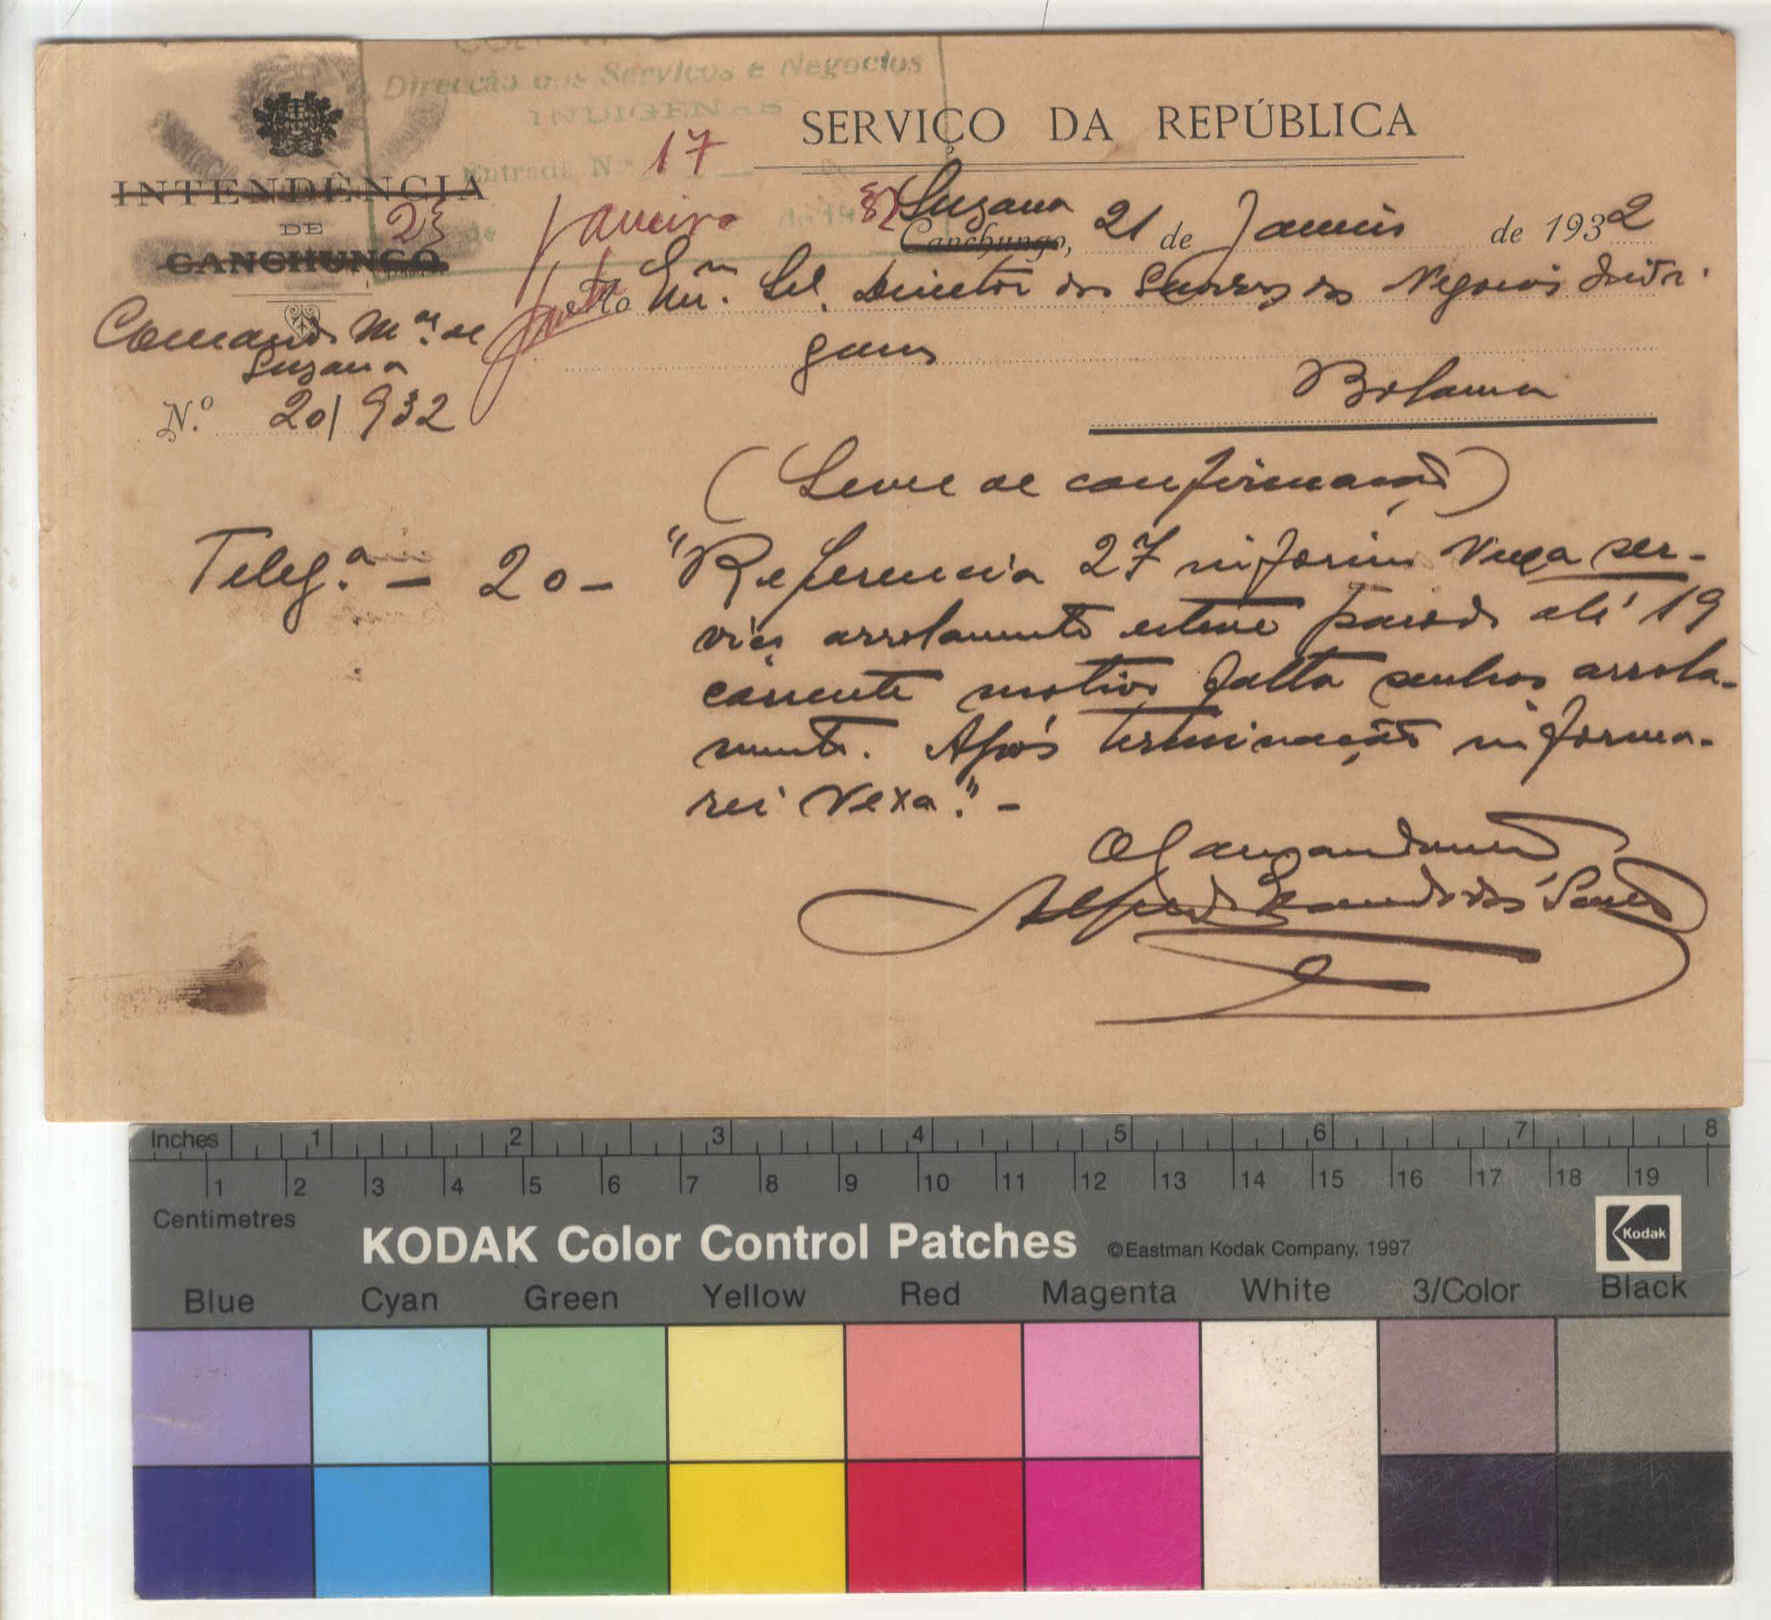 Direcção dos Serviços e Negocios
INDIGENAS
Entrada N.º 17
23 de Janeiro de 19 32
SERVIÇO DA REPÚBLICA
INTENDÊNCIA
DE
CANCHUNGO
Comando M.ar de
Suzana
N.º 20/932
Suzana
Canchungo, 21 de Janeiro de 1932
Ex.mo Snr. Director dos Serviços dos Negocios Indi-
genas
Bolama
(Serve de confirmação)
Teleg.ª - 20 - "Referencia 27 informo Vexa ser-
viço arrolamento esteve parado até 19
corrente motivo falta senhas arrola-
mento. Após terminação informa-
rei Vexa." -
O Comandante
Alfredo dos
Inches 1 2 3 4 5 6 7 8
1 2 3 4 5 6 7 8 9 10 11 12 13 14 15 16 17 18 19
Centimetres
KODAK Color Control Patches ©Eastman Kodak Company, 1997 Kodak
Blue Cyan Green Yellow Red Magenta White 3/Color Black